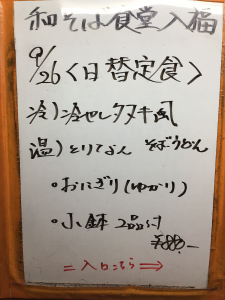 和そば食堂入福
9/26〈日替定食〉
冷)冷やしタヌキ風
温)とり天あん そばうどん
・おにぎり(ゆかり)
・小鉢 2品付
¥880.-
=入口こちら⇒